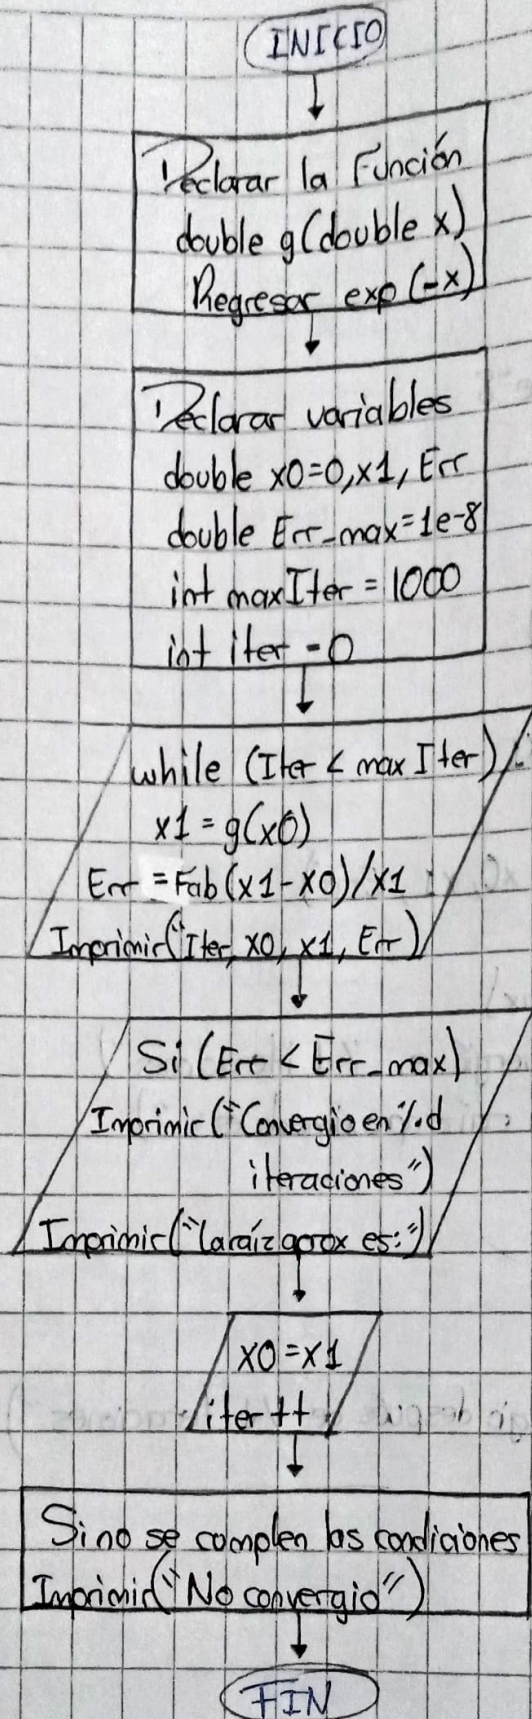 INICIO
Declarar la Función
double g(double x)
Regresar exp(-x)
Declarar variables
double x0=0,x1, Err
double Err_max=1e-8
int maxIter = 1000
int iter = 0
while (Iter < maxIter)
x1 = g(x0)
Err = Fab(x1-x0)/x1
Imprimir("Iter, x0, x1, Err)
Si (Err < Err_max)
Imprimir("Convergio en %d
iteraciones")
Imprimir("la raíz aprox es:")
x0=x1
iter++
Si no se complen las condiciones
Imprimir("No convergio")
FIN